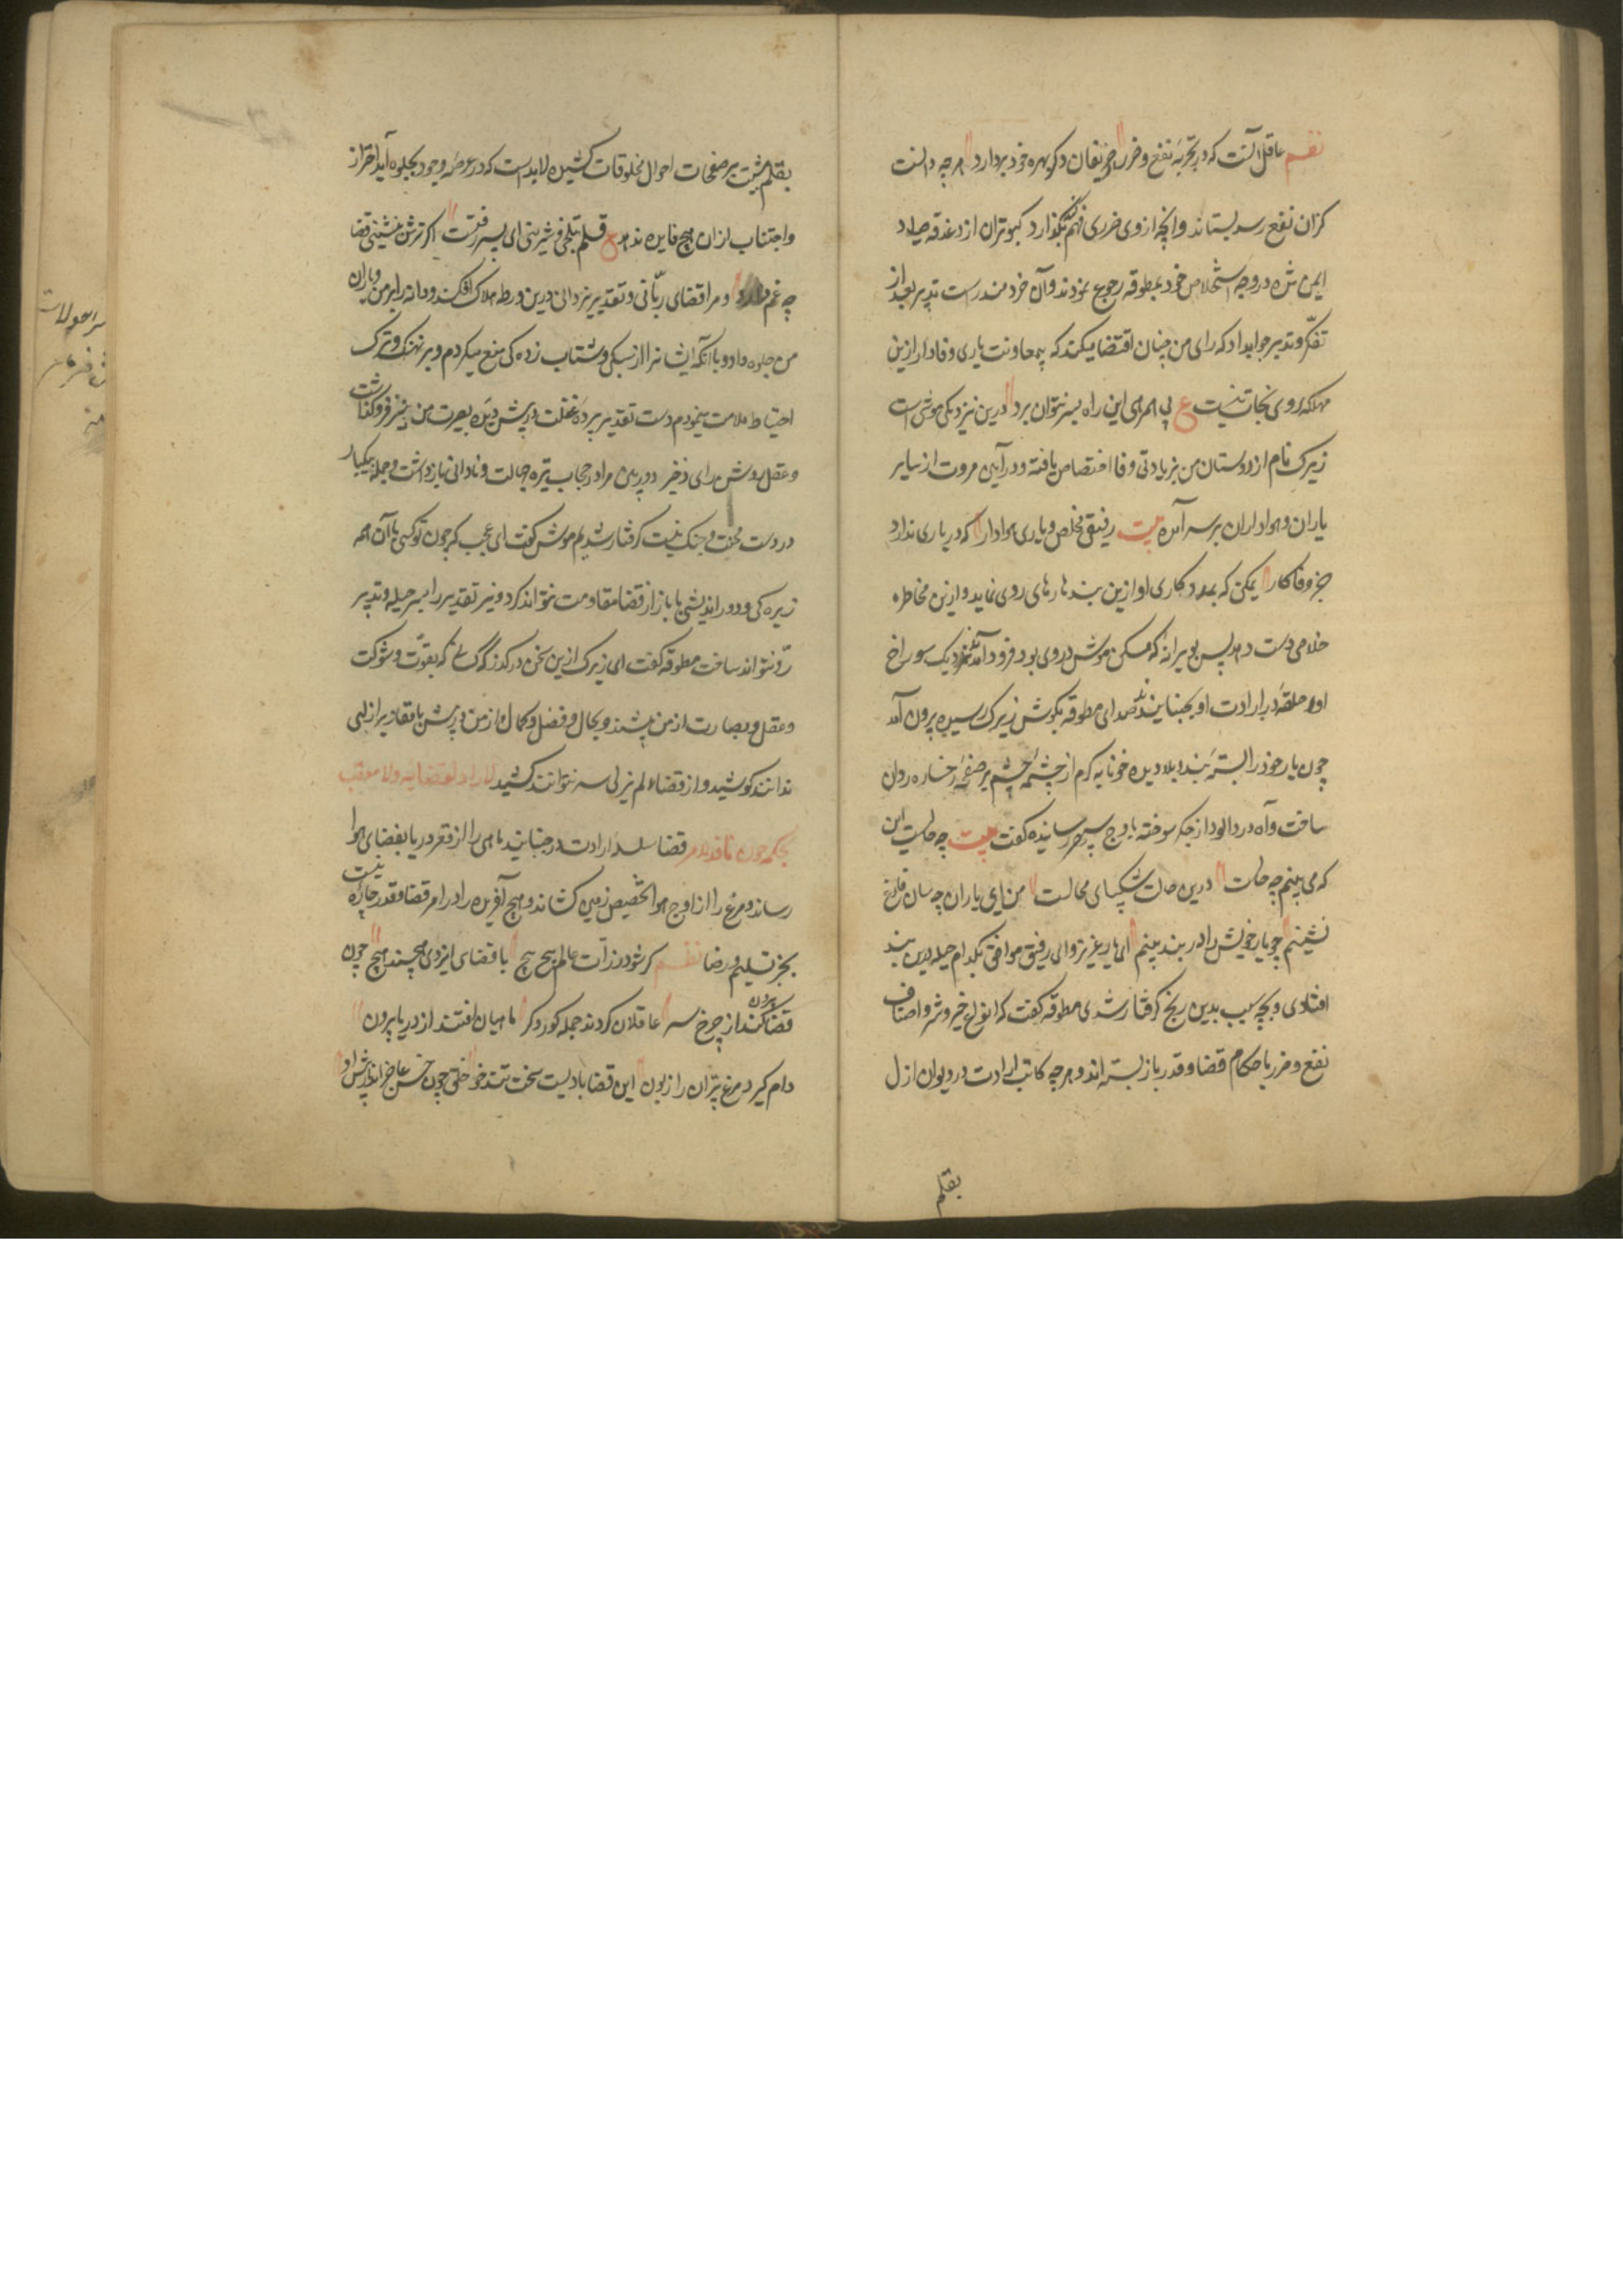 نظم عاقل آنست که در تجربهٔ نفع و ضرر از حریفان دکر بهره خود بردارد هرچه دانست
کزان نفع رسد بستاند وانچه از وی ضرری فهم کند بگذارد کبوتران از دغدغه صیاد
ایمن شده در وجه استخلاص خود بمطوقه رجوع نمودند و آن خردمند راست تدبیر بعد از
تفکر و تدبیر جواب داد که رای من چنان اقتضا میکند که بی معاونت یاری وفادار ازین
مهلکه روی نجات نیست ع بی همرهی این راه بسر نتوان برد درین نزدیکی موشی است
زیرک نام از دوستان من بزیادتی وفا اختصاص یافته و در آیین مروت از سایر
یاران و هواداران برسر آمده بیت رفیقی مخلص و یاری هوادار که در یاری ندارد
جز وفا کار یمکن که بمددکاری او ازین بند ها رهای روی نماید و ازین مخاطره
خلاصی دست دهد پس بویرانه که مسکن موش در وی بود فرود آمدند نزدیک سوراخ
او حلقهٔ در ارادت او بجنبانیدند صدای مطوقه بکوش زیرک رسیده بیرون آمد
چون یار خود را بستهٔ بند بلا دید خونابه کرم از چشمهٔ چشم بر صفحهٔ رخساره روان
ساخت و آه دردالود از جکر سوخته باوج سپهر رسانیده گفت بیت چه حالیست این
که می بینم چه حالت درین حالت شکیبای محالست من ای یاران چه سان فارغ
نشینم چو یار خویش را در بند بینم ای یار عزیز و ای رفیق موافق بکدام حیله درین بند
افتادی و بچه سبب بدین رنج کرفتار شدی مطوقه گفت که انواع خیر و شر و اصناف
نفع و ضرر باحکام قضا و قدر باز بسته اند و هرچه کاتب ارادت در دیوان ازل
بقلم
بقلم مشیت بر صفحات احوال مخلوقات کشیده لابد است که در عرصهٔ وجود بجلوه آید احتراز
و اجتناب ازان هیچ فایده ندهد ع قلم بتلخی و شیرینی ای پسر رفتست اکر ترش بنشینی قضا
چه غم دارد و مرا قضای ربانی و تقدیر یزدانی درین ورطهٔ هلاک افکند و دانه را بر من و یاران
من جلوه داد و با آنکه ایشانرا از سبکی و شتاب زده کی منع میکردم و بر تهتک و ترک
احتیاط ملامت می نمودم دست تقدیر پردهٔ غفلت در پیش دیدهٔ بصیرت من نیز فروگذاشت
و عقل روشن رای ذخیر دوربین مرا در حجاب تیرهٔ جهالت و نادانی باز داشت و جمله بیکبار
در دست محنت و چنک بلیت کرفتار شدیم موش گفت ای عجب که چون تو کسی با آن همه
زیره کی و دور اندیشی ها با باز از قضا مقاومت نتواند کرد و تیر تقدیر را بسپر حیله و تدبیر
رد نتواند ساخت مطوقه گفت ای زیرک ازین سخن درگذر که کسانی که بقوت و شوکت
و عقل و بصارت از من بیشند و بجمال و فضل و کمال از من در پیش با مقادیر ازلی
ندانند کوشید و از قضاء لم یزلی سر نتوانند کشید لاراد لقضایه ولا معقب
لحکمه چون نافذ امر قضا سلسلهٔ ارادت در جنباند ماهی را از قعر دریا بفضای هوا
رساند و مرغ را از اوج هوا بحضیض زمین کشاند و هیچ آفریده را در امر قضا و قدر چاره نیست
بجز تسلیم و رضا نظم کر شود ذرات عالم پیچ پیچ با قضای ایزدی هیچند هیچ چون
قضا بیرون کند از چرخ سر عاقلان کردند جمله کور و کر ماهیان افتند از دریا برون
دام گیرد مرغ پران را زبون این قضا بادیست سخت تندخو خلق چون خس عاجز اندر پیش او